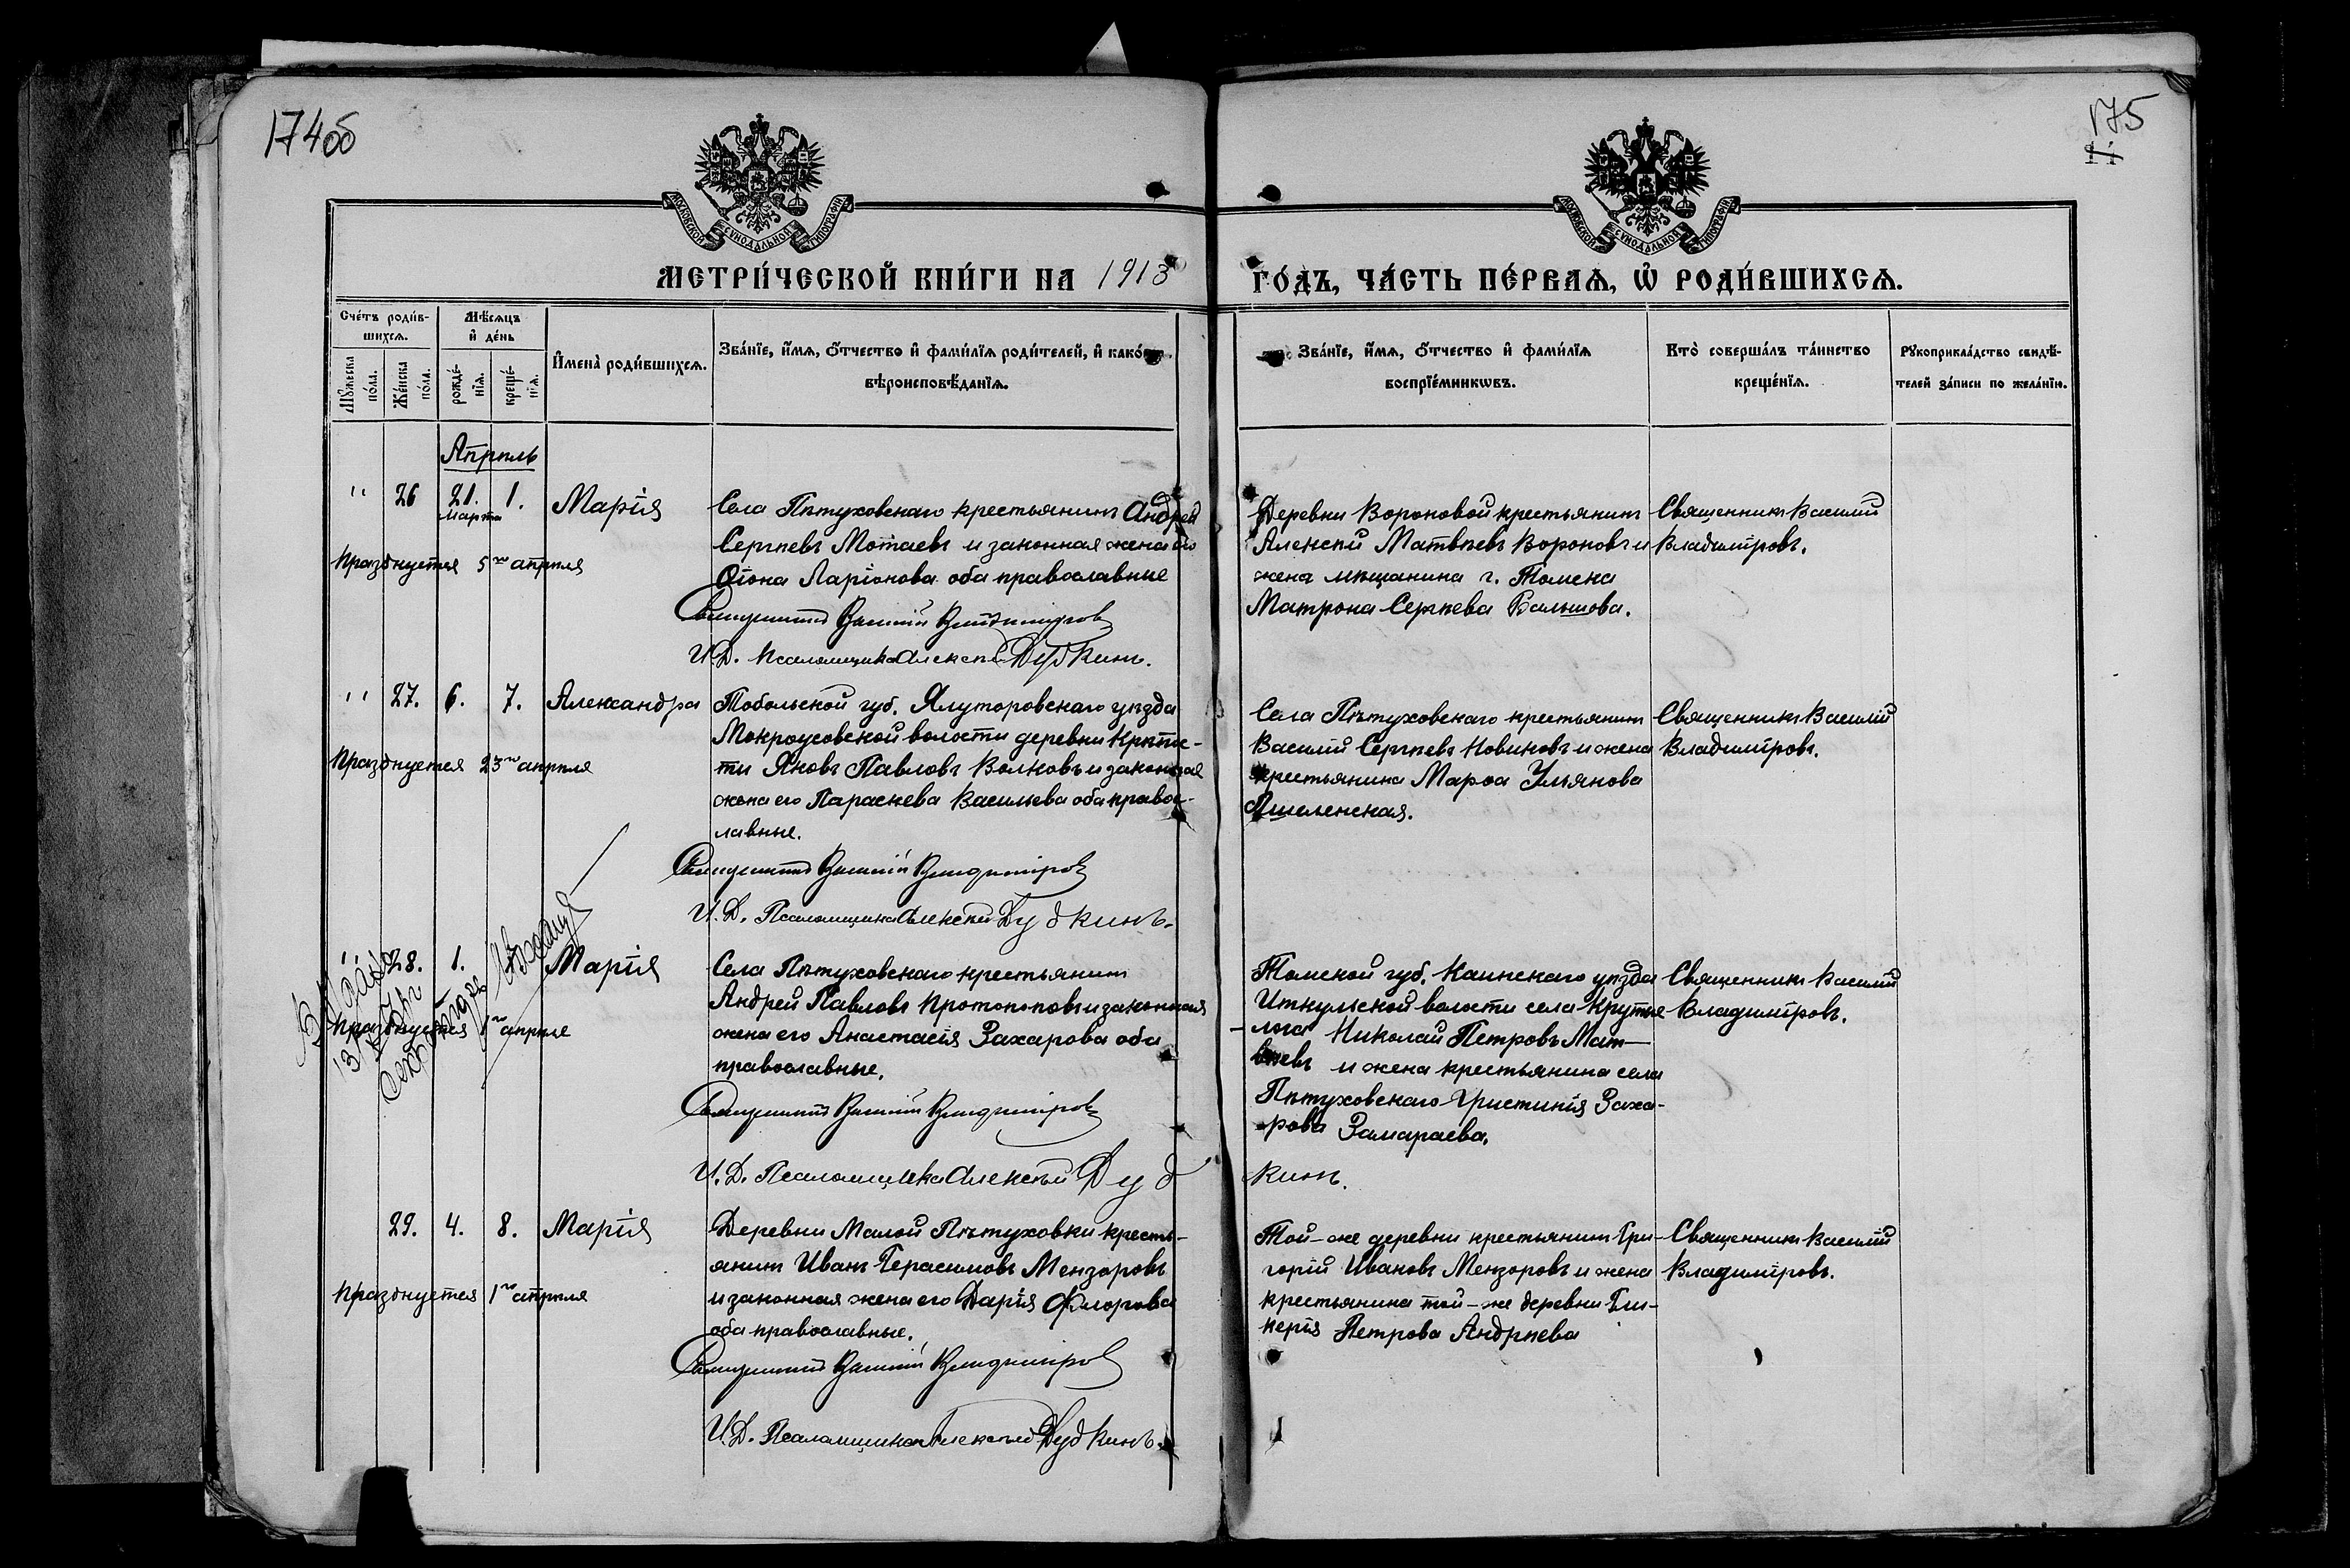 174об
175
МОСКОВСКОЙ СѴНОДАЛЬНОЙ ТИПОГРАФІИ
МОСКОВСКОЙ СѴНОДАЛЬНОЙ ТИПОГРАФІИ
МЕТРИ́ЧЕСКОЙ КНИ́ГИ НА 1913 ГО́ДЪ, ЧА́СТЬ ПЕ́РВАѦ, Ѡ҆ РОДИ́ВШИХСѦ.
Сче́тъ роди́в-
шихсѧ.
Мꙋ́жеска по́ла.
Же́нска по́ла.
Мѣ́сѧцъ
и҆ де́нь
рожде́-
нїѧ.
креще́-
нїѧ.
И҆мена̀ роди́вшихсѧ.
Зва́нїе, и҆́мѧ, ѻ҆́тчество и҆ фами́лїѧ роди́телей, и҆ како́гѡ
вѣроисповѣ́данїѧ.
Зва́нїе, и҆́мѧ, ѻ҆́тчество и҆ фами́лїѧ
воспрїе́мникѡвъ.
Кто̀ соверша́лъ та́инство
креще́нїѧ.
Рꙋкоприкла́дство свидѣ́-
телей за́писи по жела́нїю.
Апрѣль
" 26 21. марта 1. Марія
Празднуется 5го апрѣля
Села Пѣтуховскаго крестьянинъ Андрей
Сергѣевъ Мотаевъ и законная жена его
Ѳіона Ларіонова оба православные
Священникъ Василій Владиміровъ
И.Д. Псаломщика Алексѣй Дудкинъ.
Деревни Вороновой крестьянинъ
Алексѣй Матвѣевъ Вороновъ и
жена мѣщанина г. Томска
Матрона Сергѣева Балышова.
Священникъ Василій
Владиміровъ.
" 27. 6. 7. Александра
Празднуется 23го апрѣля
Тобольской губ. Ялуторовскаго уѣзда
Мокроусовской волости деревни Крѣпос-
ти Яковъ Павловъ Волковъ и законная
жена его Параскева Васильева оба правос-
лавные.
Священникъ Василій Владиміровъ
И.Д. Псаломщика Алексѣй Дудкинъ.
Села Пѣтуховскаго крестьянинъ
Василій Сергѣевъ Новиковъ и жена
крестьянина Марѳа Ульянова
Священникъ Василій
Владиміровъ.
" 28. 1. Марія
Празднуется 1го апрѣля
Села Пѣтуховскаго крестьянинъ
Андрей Павловъ Протопоповъ и законная
жена его Анастасія Захарова оба
православные.
Священникъ Василій Владиміровъ
И.Д. Псаломщика Алексѣй Дудкинъ.
Томской губ. Каинскаго уѣзда
Иткульской волости села Крутые
-лога Николай Петровъ Мат-
вѣевъ и жена крестьянина села
Пѣтуховскаго Христинія Заха-
рова Замараева.
Священникъ Василій
Владиміровъ.
29. 4. 8. Марія
Празднуется 1го апрѣля
Деревни Малой Пѣтуховки кресть-
янинъ Иванъ Герасимовъ Мензоровъ
и законная жена его Дарія Флорова
оба православные.
Священникъ Василій Владиміровъ
И.Д. Псаломщика Алексѣй Дудкинъ.
Той-же деревни крестьянинъ Гри-
горій Ивановъ Мензоровъ и жена
крестьянина той-же деревни Гли-
керія Петрова Андрѣева
Священникъ Василій
Владиміровъ.